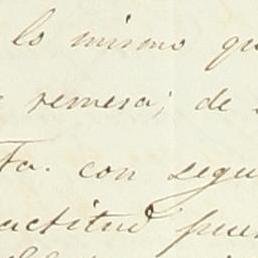 lo mismo qu
remesa; de
Fa. con segu
actitud pue